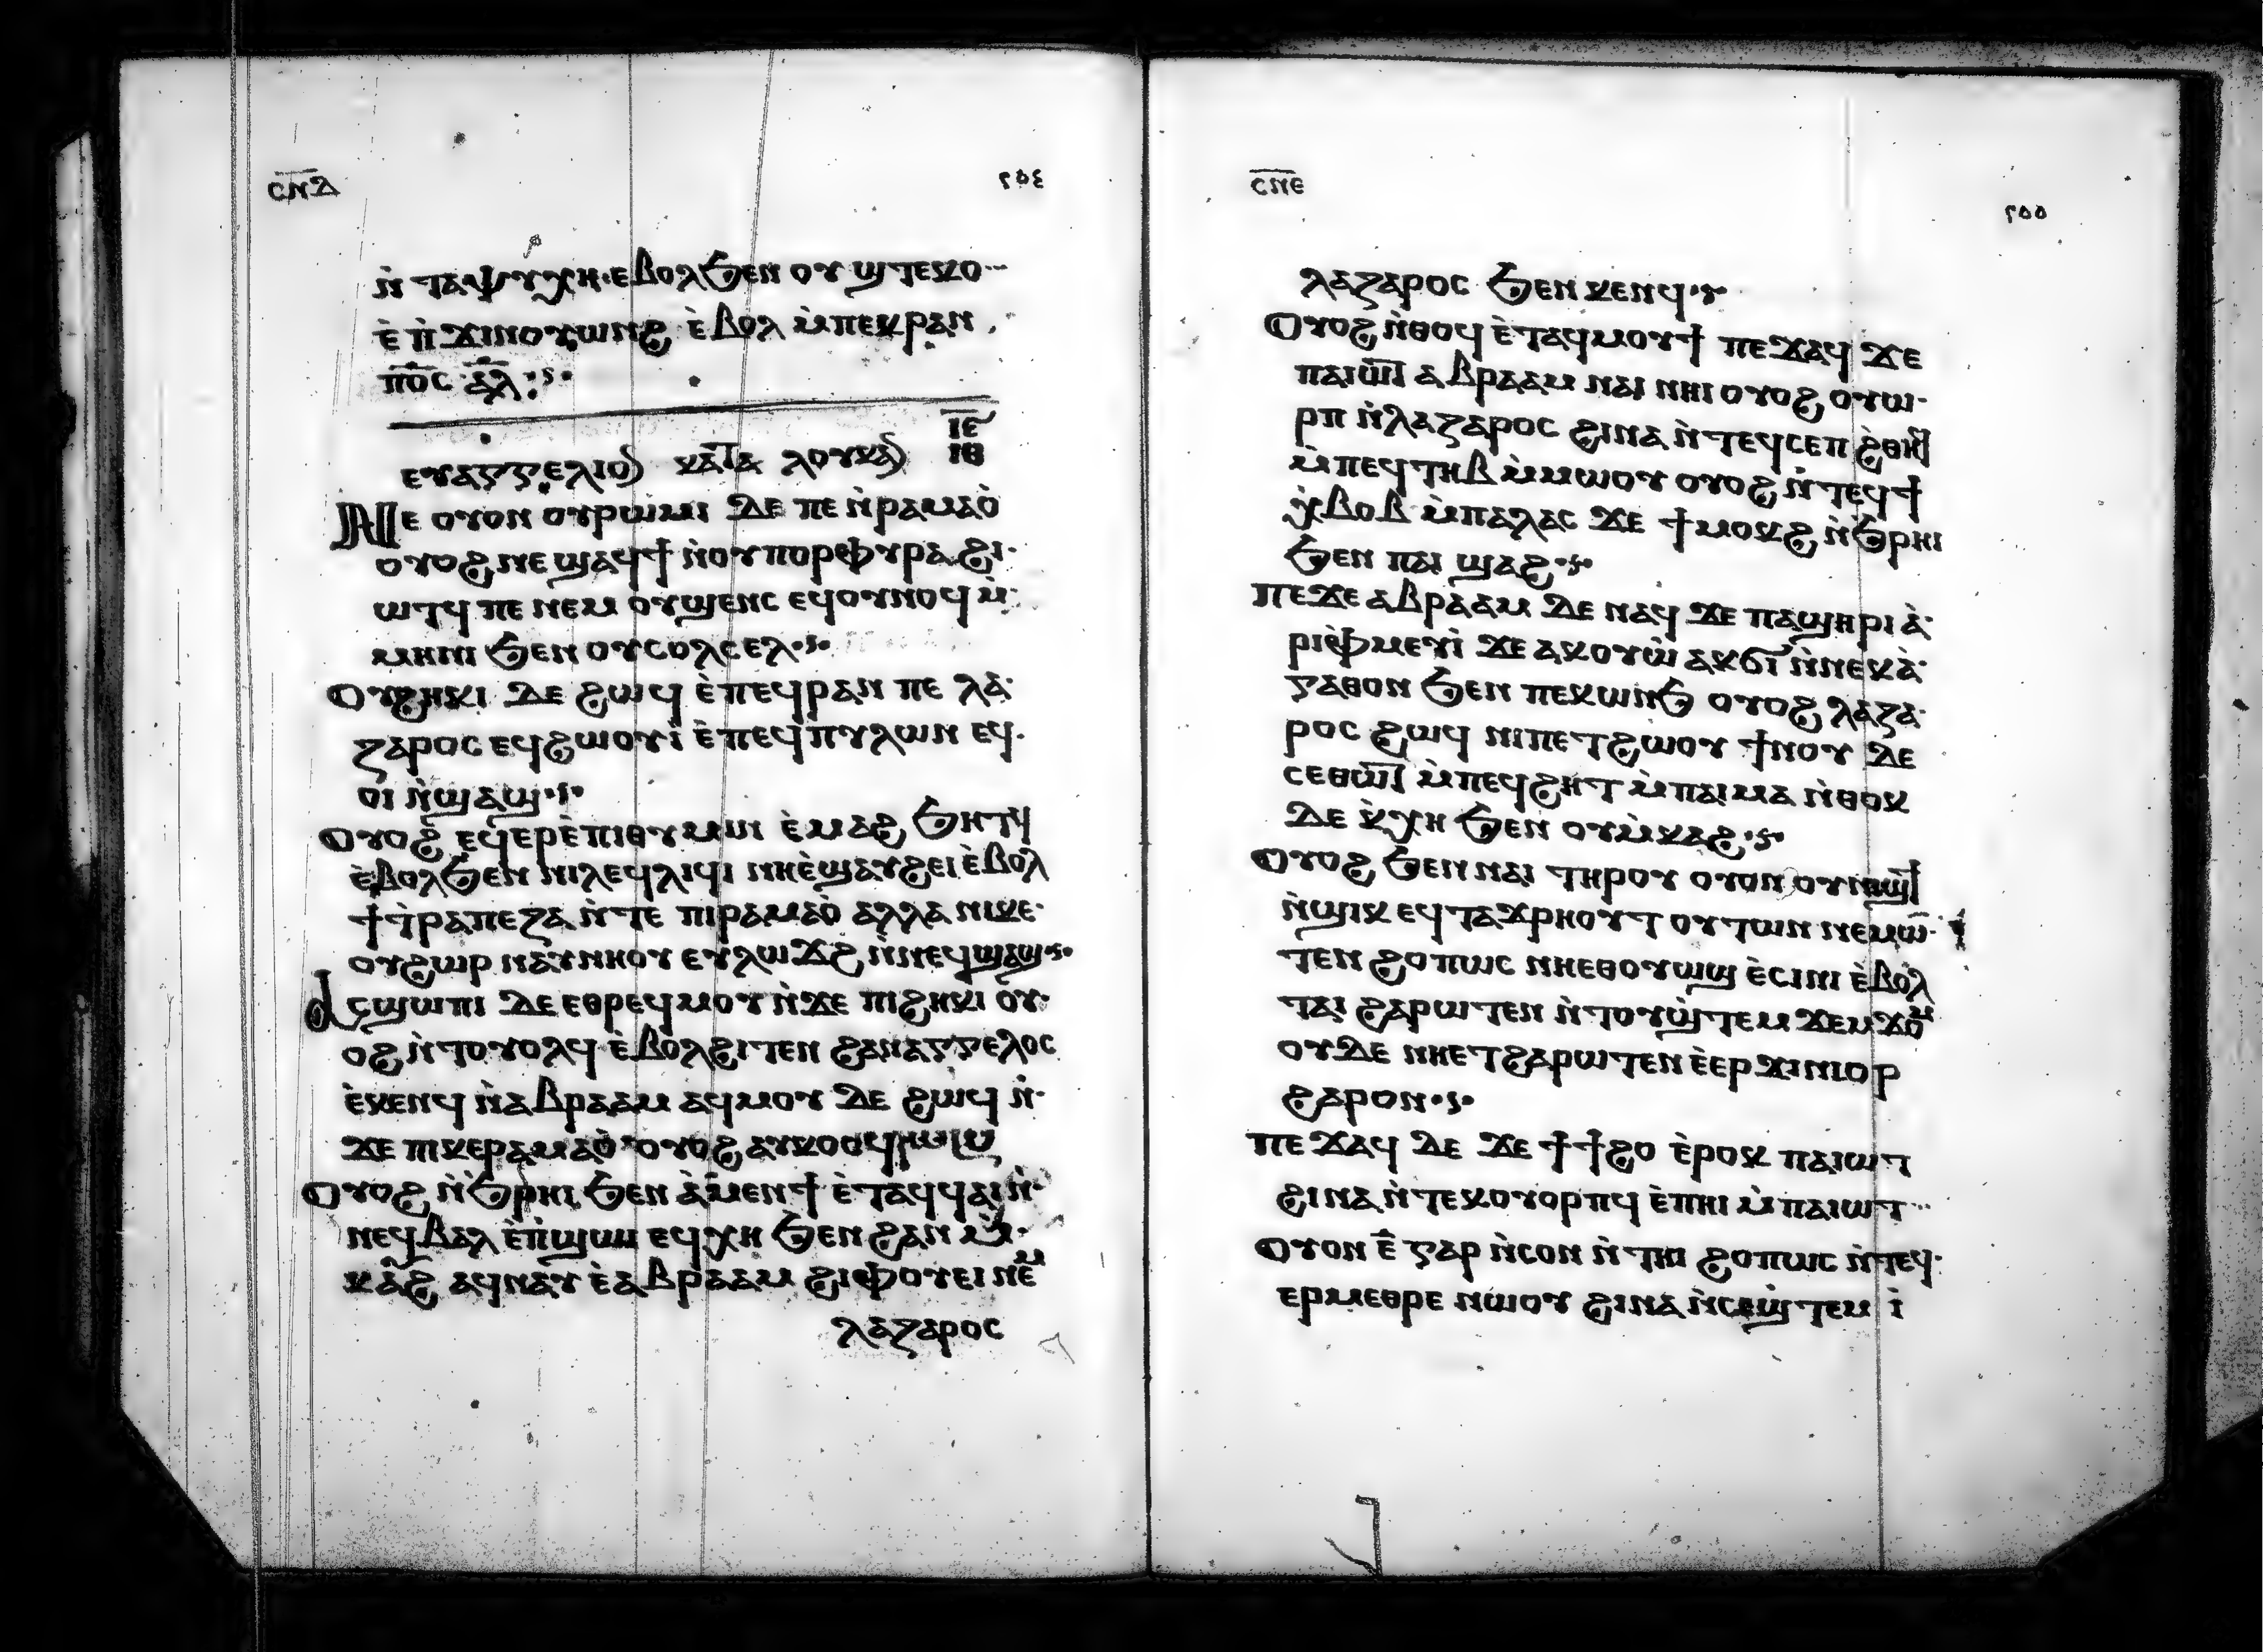 ⲥⲛ̅ⲇ
٢٥٤
ⲛ̀ ⲧⲁⲯⲩⲭⲏ ⲉⲃⲟⲗϧⲉⲛ ⲟⲩ ϣⲧⲉⲕⲟ
ⲉ̀ ⲡ̀ ϫⲓⲛⲟⲩⲱⲛϩ ⲉ̀ⲃⲟⲗ ⲙ̀ⲡⲉⲕⲣⲁⲛ
ⲡ̅ⲟ̅ⲥ̅ ⲁ̅ⲗ̅
ⲉⲩⲁⲅⲅⲉⲗⲓⲟ ⲕⲁⲧⲁ ⲗⲟⲩⲕⲁ ⲓ̅ⲉ̅
ⲓⲑ
Ⲛⲉ ⲟⲩⲟⲛ ⲟⲩⲣⲱⲙⲓ ⲇⲉ ⲡⲉ ⲛ̀ⲣⲁⲙⲁⲟ̀
ⲟⲩⲟϩ ⲛⲉ ϣⲁϥϯ ⲛ̀ⲟⲩⲡⲟⲣⲫⲩⲣⲁ ϩⲓ
ⲱⲧϥ ⲡⲉ ⲛⲉⲙ ⲟⲩϣⲉⲛⲥ ⲉϥⲟⲩⲛⲟϥ ⲙ̀
ⲙⲏⲛⲓ ϧⲉⲛ ⲟⲩⲥⲟⲗⲥⲉⲗ
Ⲟⲩϩⲏⲕⲓ ⲇⲉ ϩⲱϥ ⲉ̀ⲡⲉϥⲣⲁⲛ ⲡⲉ ⲗⲁ
ⲍⲁⲣⲟⲥ ⲉϥϩⲱⲟⲩⲓ̀ ⲉ̀ ⲡⲉϥⲡⲩⲗⲱⲛ ⲉϥ
ⲟⲓ ⲛ̀ϣⲁϣ
Ⲟⲩⲟϩ ⲉϥⲉⲣⲉ̀ⲡⲓⲑⲩⲙⲓⲛ ⲉ̀ⲙⲁϩ ϧⲏⲧϥ
ⲉ̀ⲃⲟⲗϧⲉⲛ ⲛⲓⲗⲉϥⲗⲓϥⲓ ⲛⲏⲉ̀ϣⲁⲩϩⲉⲓ ⲉ̀ⲃⲟⲗ
ϯⲧ̀ⲣⲁⲡⲉⲍⲁ ⲛ̀ⲧⲉ ⲡⲓⲣⲁⲙⲁⲟ̀ ⲁⲗⲗⲁ ⲛⲓⲕⲉ
ⲟⲩϩⲱⲣ ⲛⲁⲩⲛⲏⲟⲩ ⲉⲩⲗⲱϫϩ ⲛ̀ⲛⲉϥϣⲁϣ
Ⲁⲥϣⲱⲡⲓ ⲇⲉ ⲉⲑⲣⲉϥⲙⲟⲩ ⲛ̀ϫⲉ ⲡⲓϩⲏⲕⲓ ⲟⲩ
ⲟϩ ⲛ̀ⲧⲟⲩⲟⲗϥ ⲉ̀ⲃⲟⲗϩⲓⲧⲉⲛ ϩⲁⲛⲁⲅⲅⲉⲗⲟⲥ
ⲉ̀ⲕⲉⲛϥ ⲛ̀ⲁⲃⲣⲁⲁⲙ ⲁϥⲙⲟⲩ ⲇⲉ ϩⲱϥ ⲛ̀
ϫⲉ ⲡⲓⲕⲉⲣⲁⲙⲁⲟ̀ ⲟⲩⲟϩ ⲁⲩⲕⲟⲥϥ
Ⲟⲩⲟϩ ⲛ̀ϧⲣⲏⲓ ϧⲉⲛ ⲁ̀ⲙⲉⲛϯ ⲉ̀ⲧⲁϥϥⲁⲓ ⲛ̀
ⲛⲉϥⲃⲁⲗ ⲉ̀ⲡ̀ϣⲱⲓ ⲉϥⲭⲏ ϧⲉⲛ ϩⲁⲛ ⲙ̀
ⲕⲁϩ ⲁϥⲛⲁⲩ ⲉ̀ⲁⲃⲣⲁⲁⲙ ϩⲓⲫⲟⲩⲉⲓ ⲛⲉⲙ
ⲗⲁⲍⲁⲣⲟⲥ
ⲥⲛ̅ⲉ
٢٥٥
ⲗⲁⲍⲁⲣⲟⲥ ϧⲉⲛ ⲕⲉⲛϥ
Ⲟⲩⲟϩ ⲛ̀ⲑⲟϥ ⲉ̀ⲧⲁϥⲙⲟⲩϯ ⲡⲉϫⲁϥ ϫⲉ
ⲡⲁⲓⲱⲧ ⲁⲃⲣⲁⲁⲙ ⲛⲁⲓ ⲛⲏⲓ ⲟⲩⲟϩ ⲟⲩⲱ
ⲣⲡ ⲛ̀ⲗⲁⲍⲁⲣⲟⲥ ϩⲓⲛⲁ ⲛ̀ⲧⲉϥⲥⲉⲡ ϩ̀ⲑⲏϥ
ⲙ̀ⲡⲉϥⲧⲏⲃ ⲙ̀ⲙⲱⲟⲩ ⲟⲩⲟϩ ⲛ̀ⲧⲉϥϯ
ⲭ̀ⲃⲟⲃ ⲙ̀ⲡⲁⲗⲁⲥ ϫⲉ ϯⲙⲟⲕϩ ⲛ̀ϧⲣⲏⲓ
ϧⲉⲛ ⲡⲁⲓ ϣⲁϩ
ⲡⲉϫⲉ ⲁⲃⲣⲁⲁⲙ ⲇⲉ ⲛⲁϥ ϫⲉ ⲡⲁϣⲏⲣⲓ ⲁ̀
ⲣⲓⲫ̀ⲙⲉⲩⲓ̀ ϫⲉ ⲁⲕⲟⲩⲱ̀ ⲁⲕϭⲓ ⲛ̀ⲛⲉⲕⲁ̀
ⲅⲁⲑⲟⲛ ϧⲉⲛ ⲡⲉⲕⲱⲛϧ ⲟⲩⲟϩ ⲗⲁⲍⲁ
ⲣⲟⲥ ϩⲱϥ ⲛⲓⲡⲉⲧϩⲱⲟⲩ ϯⲛⲟⲩ ⲇⲉ
ⲥⲉⲑⲱⲧ ⲙ̀ⲡⲉϥϩⲏⲧ ⲙ̀ⲡⲁⲓⲙⲁ ⲛ̀ⲑⲟⲕ
ⲇⲉ ⲕ̀ⲭⲏ ϧⲉⲛ ⲟⲩⲙ̀ⲕⲁϩ
Ⲟⲩⲟϩ ϧⲉⲛ ⲛⲁⲓ ⲧⲏⲣⲟⲩ ⲟⲩⲟⲛ ⲟⲩⲛⲓϣϯ
ⲛ̀ϣⲓⲕ ⲉϥⲧⲁϫⲣⲏⲟⲩⲧ ⲟⲩⲧⲱⲛ ⲛⲉⲙⲱ
ⲧⲉⲛ ϩⲟⲡⲱⲥ ⲛⲏⲉⲑⲟⲩⲱϣ ⲉ̀ⲥⲓⲛⲓ ⲉ̀ⲃⲟⲗ
ⲧⲁⲓ ϩⲁⲣⲱⲧⲉⲛ ⲛ̀ⲧⲟⲩϣ̀ⲧⲉⲙ ϫⲉⲙϫⲟⲙ
ⲟⲩⲇⲉ ⲛⲏⲉⲧϩⲁⲣⲱⲧⲉⲛ ⲉ̀ⲉⲣ ϫⲓⲛⲓⲟⲣ
ϩⲁⲣⲟⲛ
ⲡⲉϫⲁϥ ⲇⲉ ϫⲉ ϯϯϩⲟ ⲉ̀ⲣⲟⲕ ⲡⲁⲓⲱⲧ
ϩⲓⲛⲁ ⲛ̀ⲧⲉⲕⲟⲩⲟⲣⲡϥ ⲉ̀ⲡⲏⲓ ⲙ̀ⲡⲁⲓⲱⲧ
Ⲟⲩⲟⲛ ⲉ̅ ⲅⲁⲣ ⲛ̀ⲥⲟⲛ ⲛ̀ⲧⲏⲓ ϩⲟⲡⲱⲥ ⲛ̀ⲧⲉϥ
ⲉⲣⲙⲉⲑⲣⲉ ⲛⲱⲟⲩ ϩⲓⲛⲁ ⲛ̀ⲥⲉϣ̀ⲧⲉⲙ ⲓ̀